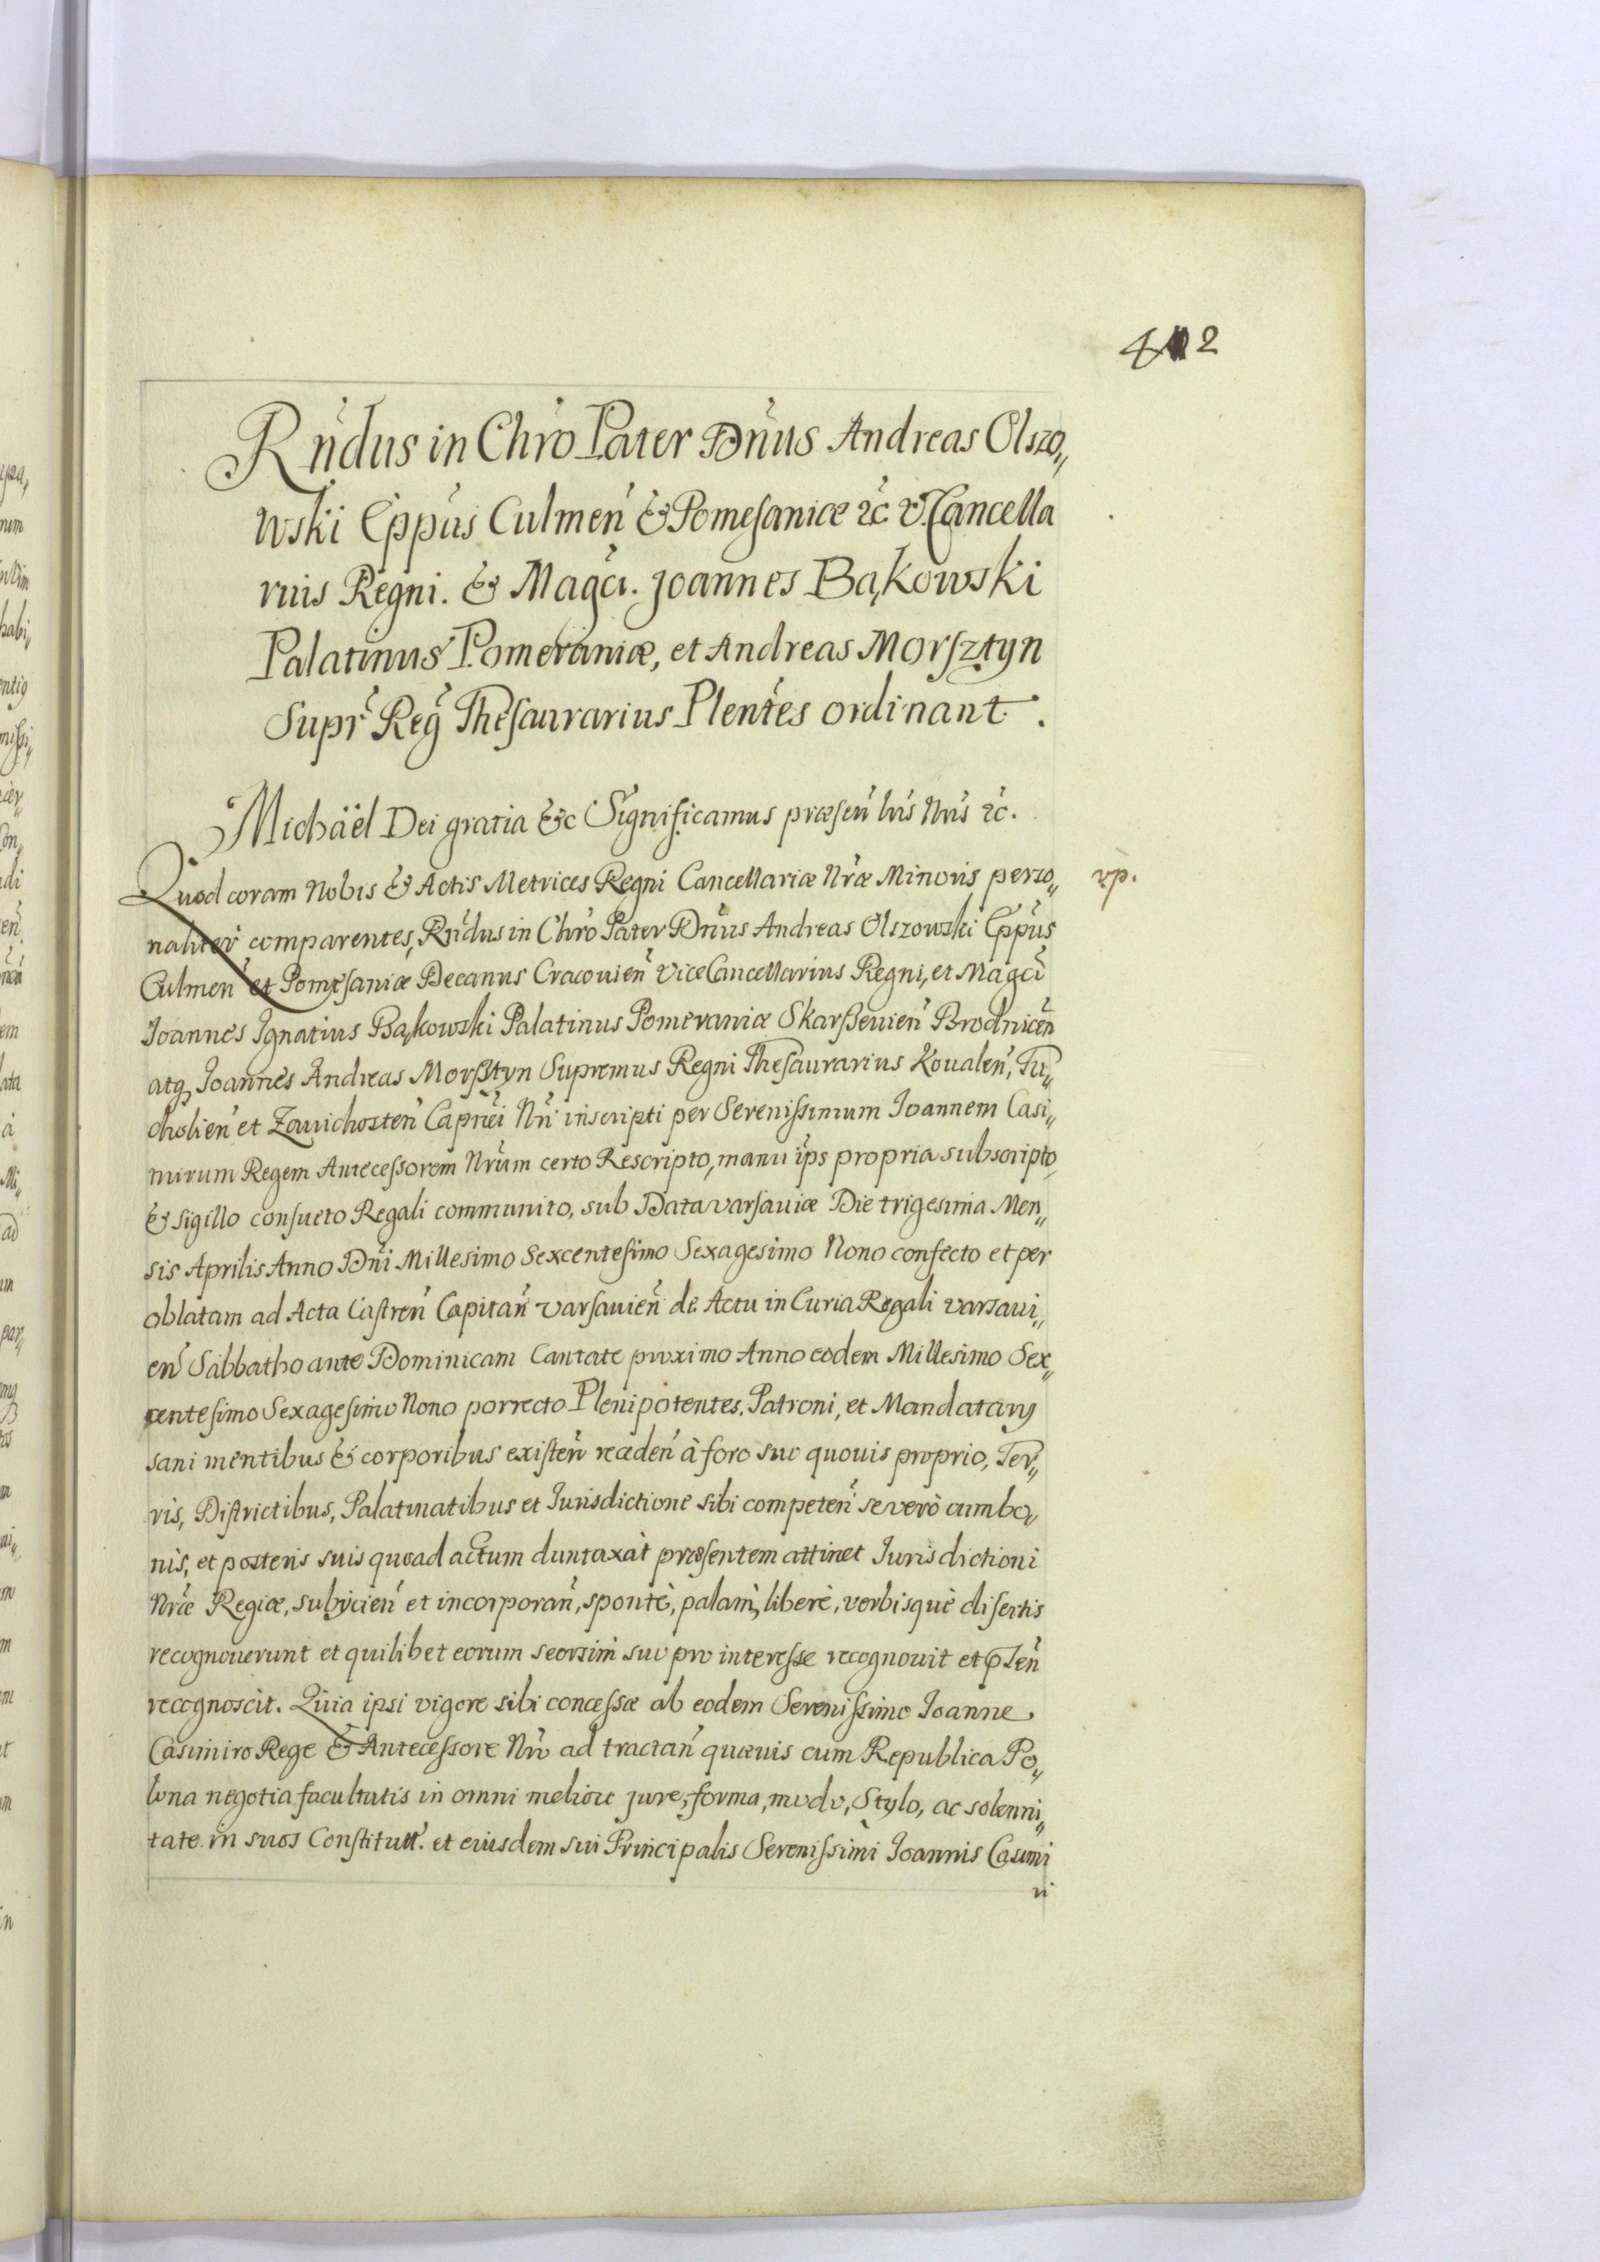 412
Rńdus in Chro Pater Dńus Andreas Olszo„
wski Eppus Culmeń & Pomesaniæ &c V. Cancella
rius Regni. & Magci. Joannes Bąkowski
Palatinus Pomeraniæ, et Andreas Morsztyn
Supr Reg Thesaurarius Plentes ordinant.
Michäel Dei gratia &c Significamus præseń lris Nris &c.
Quod coram Nobis & Actis Metrices Regni Cancellariæ Nræ Minoris perso„
vp.
naliter comparentes, Rńdus in Chro Pater Dńus Andreas Olszowski Eppus
Culmeń et Pomesaniæ Decanus Cracouień ViceCancellarius Regni, et Magci
Joannes Ignatius Bąkowski Palatinus Pomeraniæ Skarßeuień Brodniceń
atq Joannes Andreas Morßtyn Supremus Regni Thesaurarius Koualeń, Tu„
cholień et Zawichosteń Capnei Nri inscripti per Serenissimum Joannem Casi„
mirum Regem Antecessorem Nrum certo Rescripto, manu ips propria subscripto
& sigillo consueto Regali communito, sub Data varsauiæ Die trigesima Men„
sis Aprilis Anno Dni Millesimo Sexcentesimo Sexagesimo Nono confecto et per
oblatam ad Acta Castreń Capitań Varsauień de Actu in Curia Regali varsaui„
eń Sabbatho ante Dominicam Cantate proximo Anno eodem Millesimo Sex„
centesimo Sexagesimo Nono porrecto Plenipotentes, Patroni, et Mandatarij
sani mentibus & corporibus existeń recedeń à foro suo quouis proprio, Ter„
ris, Districtibus, Palatinatibus et Jurisdictione sibi competeń se verò cum bo„
nis, et posteris suis quoad actum duntaxàt præsentem attinet Jurisdictioni
Nræ Regiæ, subijcień et incorporań, spontè, palàm, liberè, verbisquè disertis
recognouerunt et quilibet eorum seorsim suo pro interesse recognouit et pleń
recognoscit. Quia ipsi vigore sibi concessæ ab eodem Serenissimo Joanne
Casimiro Rege & Antecessore Nro ad tractań quæuis cum Republica Po„
lona negotia facultatis in omni meliori jure, forma, modo, Stylo, ac solenni„
tate in suos Constitutt. et eiusdem sui Principalis Serenissimi Joannis Casimi
ri